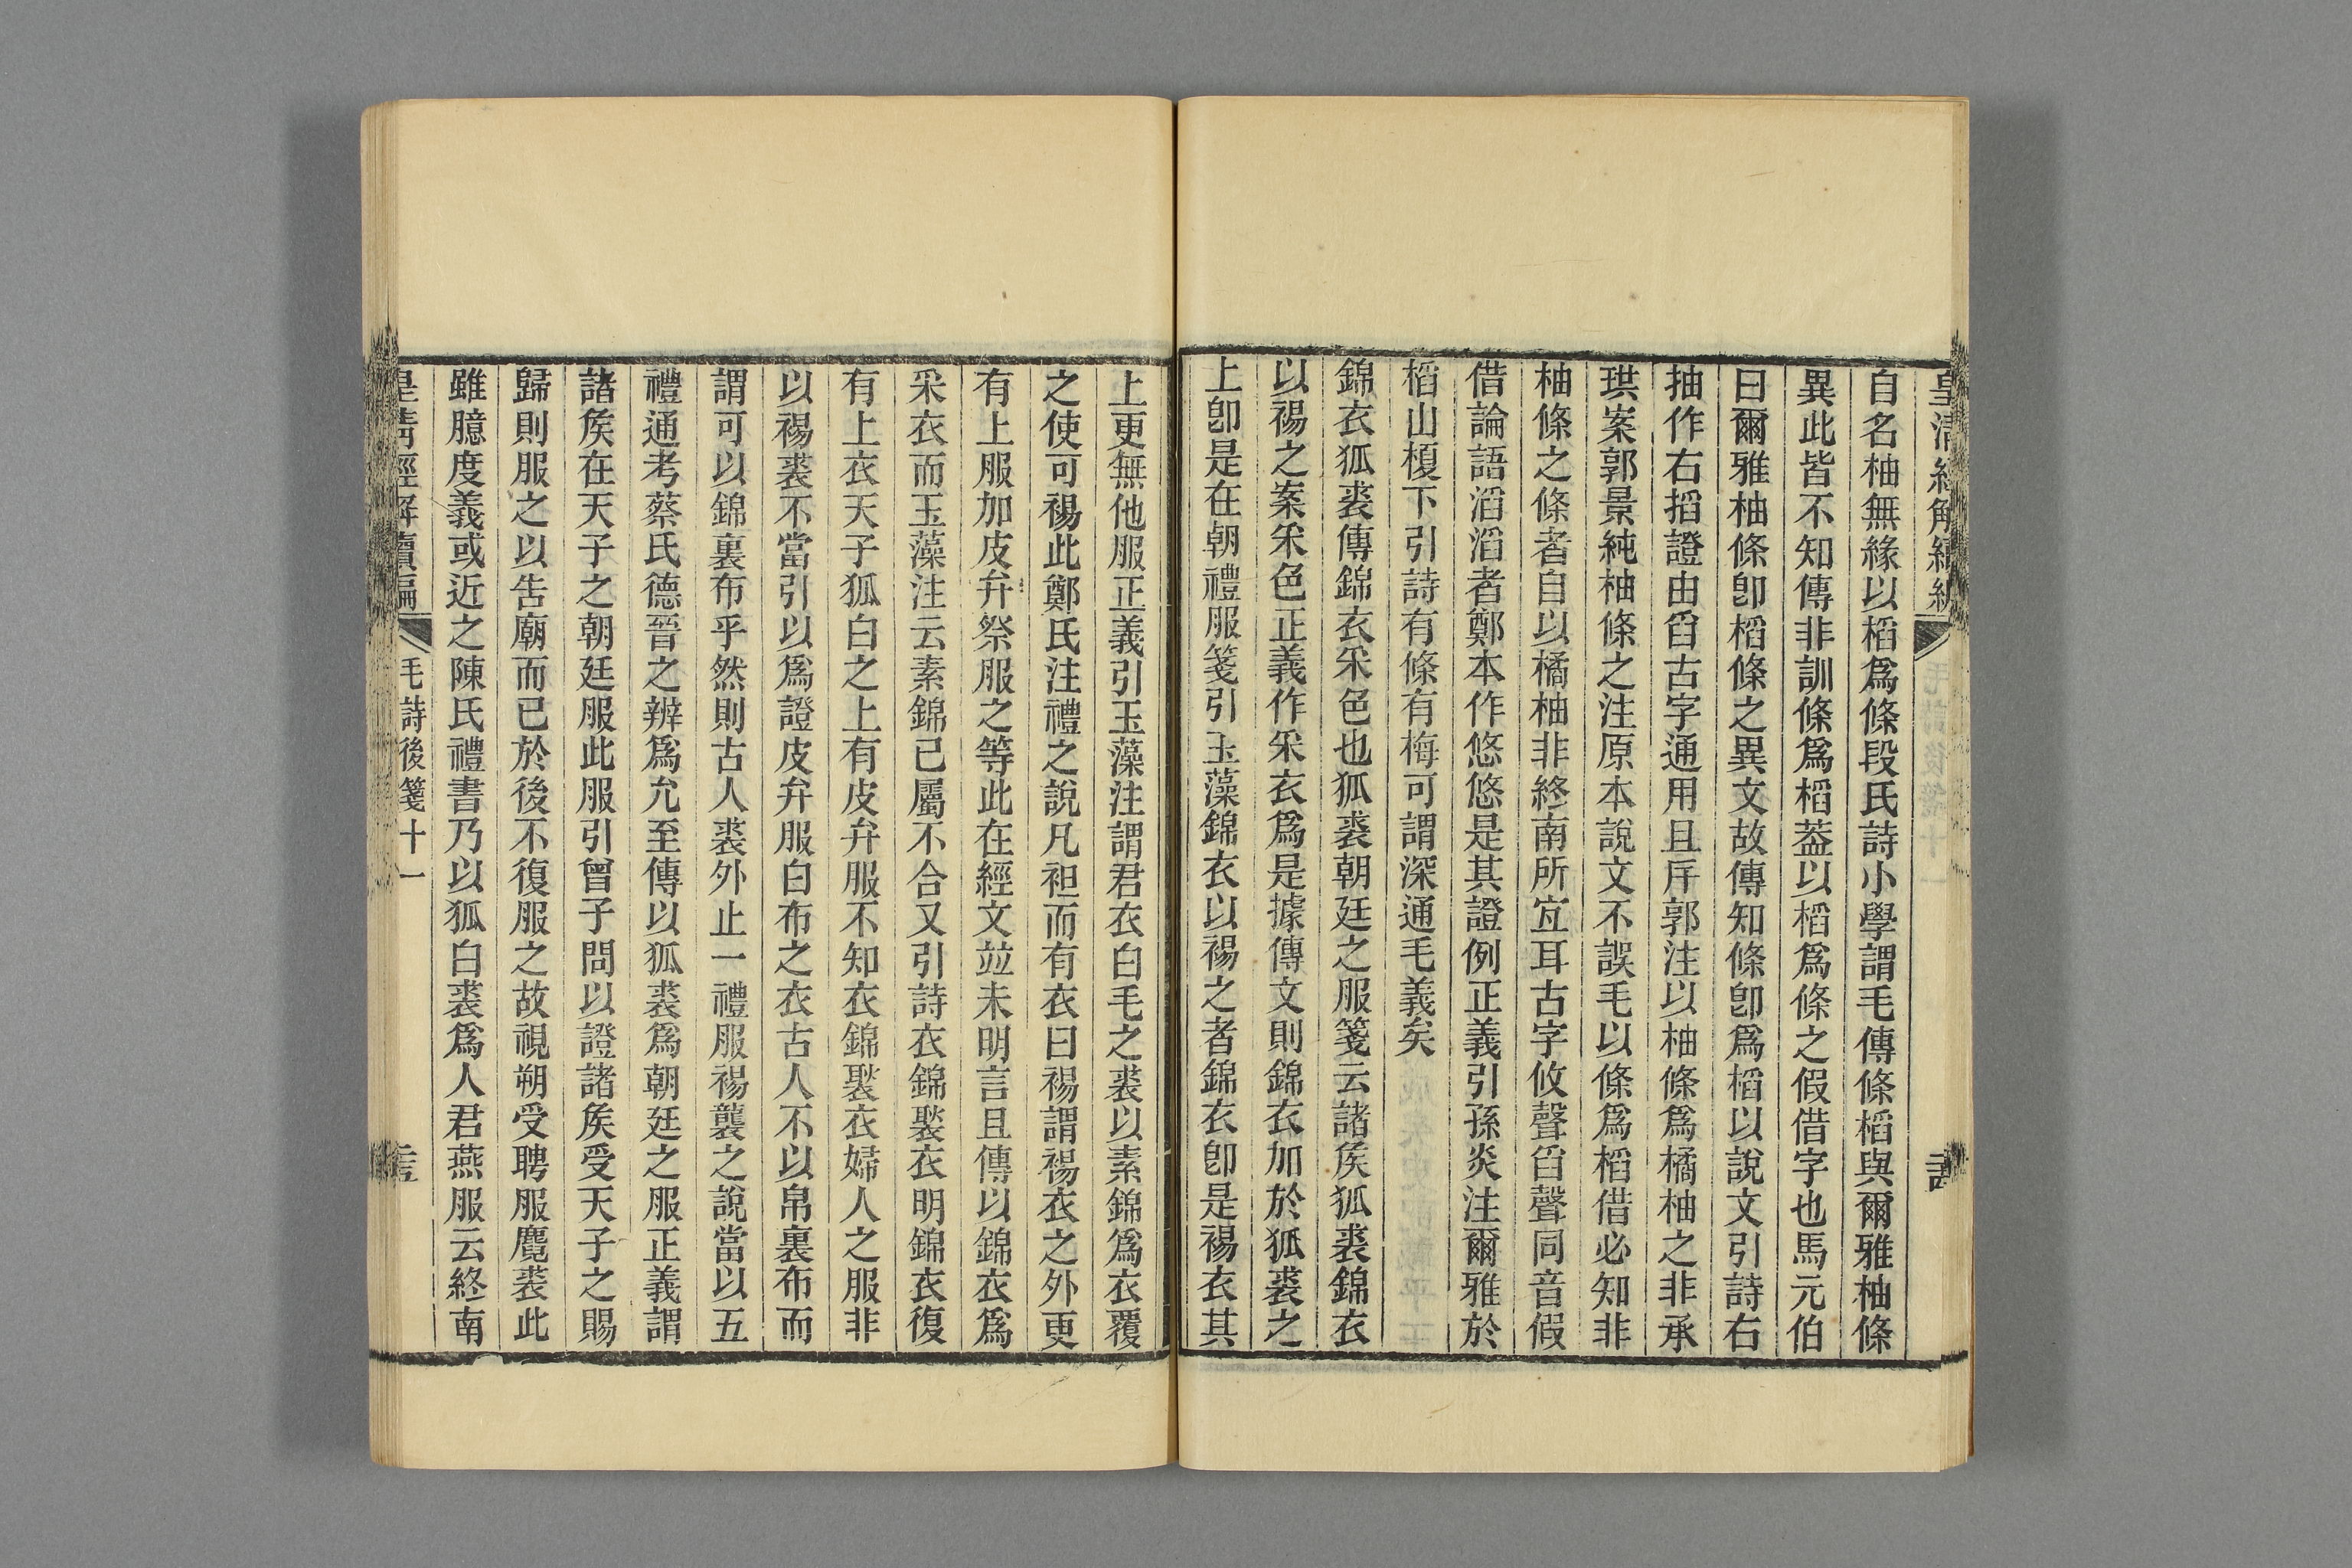 皇清經解續編
自名柚無緣以槄爲條段氏詩小學謂毛傳條槄與爾雅柚條
異此皆不知傳非訓條爲槄葢以槄爲條之假借字也馬元伯
曰爾雅柚條卽槄條之異文故傳知條卽爲槄以說文引詩右
抽作右搯證由舀古字通用且厈郭注以柚條爲橘柚之非承
珙案郭景純柚條之注原本說文不誤毛以條爲槄借必知非
柚條之條者自以橘柚非終南所宐耳古字攸聲舀聲同音假
借論語滔滔者鄭本作悠悠是其證例正義引孫炎注爾雅於
槄山榎下引詩有條有梅可謂深通毛義矣
錦衣狐裘傳錦衣釆色也狐裘朝廷之服箋云諸矦狐裘錦衣
以裼之案釆色正義作釆衣爲是據傳文則錦衣加於狐裘之
上卽是在朝禮服箋引玉藻錦衣以裼之者錦衣卽是裼衣其
上更無他服正義引玉藻注謂君衣白毛之裘以素錦爲衣覆
之使可裼此鄭氏注禮之說凡袒而有衣曰裼謂裼衣之外更
有上服加皮弁祭服之等此在經文竝未明言且傳以錦衣爲
釆衣而玉藻注云素錦已屬不合又引詩衣錦褧衣明錦衣復
有上衣天子狐白之上有皮弁服不知衣錦褧衣婦人之服非
以裼裘不當引以爲證皮弁服白布之衣古人不以帛裏布而
謂可以錦裏布乎然則古人裘外止一禮服裼襲之說當以五
禮通考蔡氏德晉之辨爲允至傳以狐裘爲朝廷之服正義謂
諸矦在天子之朝廷服此服引曾子問以證諸矦受天子之賜
歸則服之以告廟而已於後不復服之故視朔受聘服麑裘此
雖臆度義或近之陳氏禮書乃以狐白裘爲人君燕服云終南
皇清經解續編 毛詩後箋十一